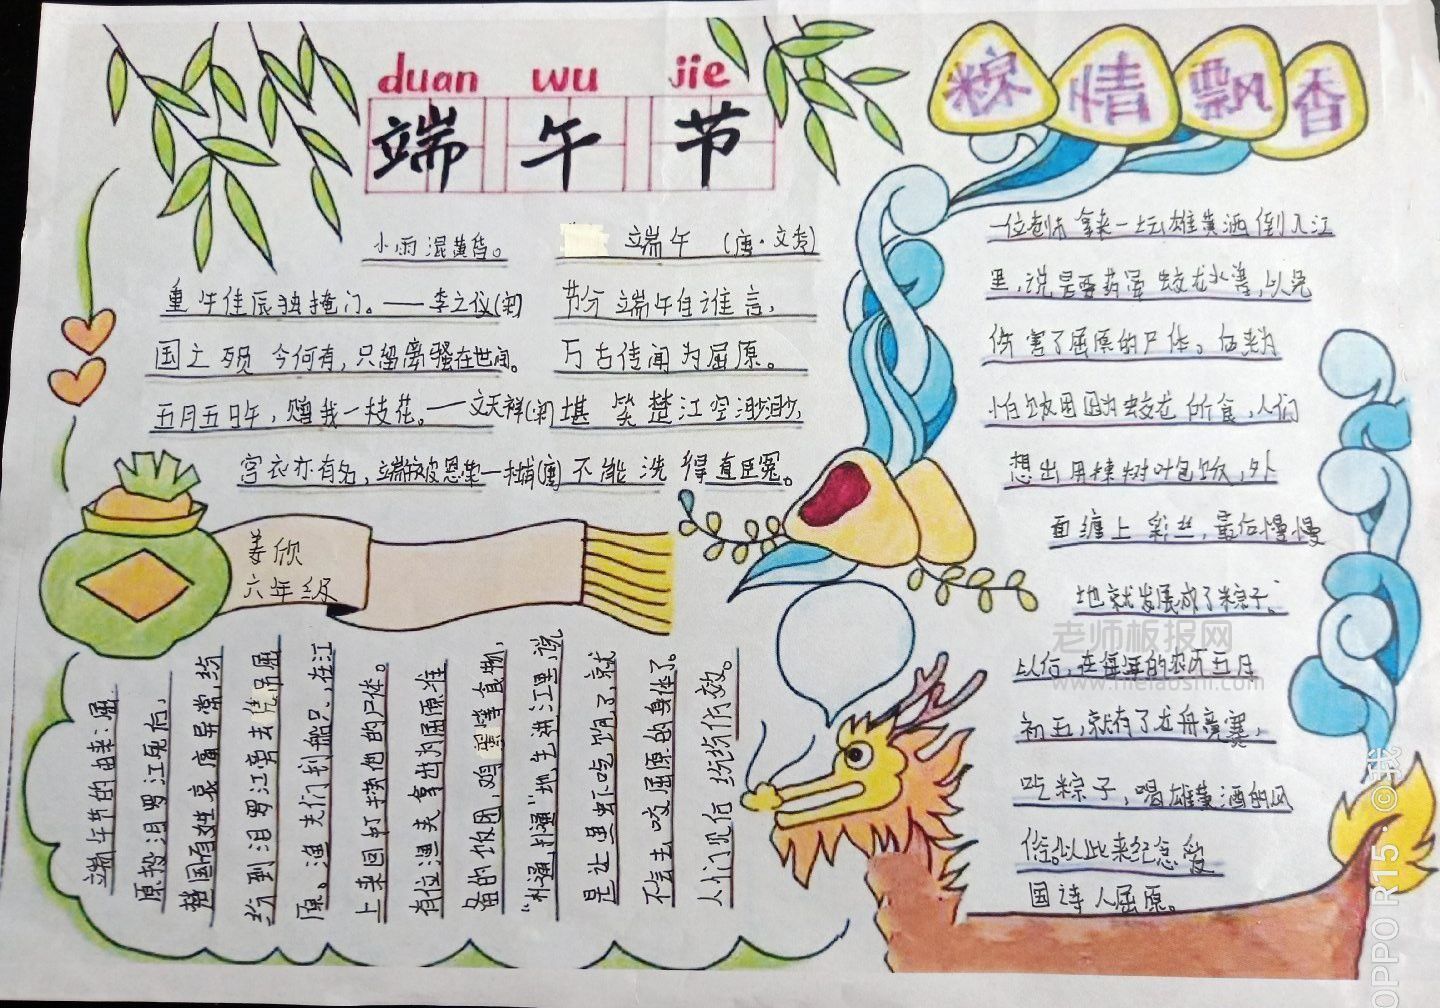 duan wu jie
端午节
粽情飘香
小雨湿黄昏。
重午佳辰独掩门。——李之仪(宋)
国之殇 今何有，只留离骚在世间。
五月五日午，赠我一枝花。——文天祥(宋)
宫衣亦有名，端午被恩荣—杜甫(唐)
端午 (唐·文秀)
节分端午自谁言，
万古传闻为屈原。
堪笑楚江空渺渺，
不能洗得直臣冤。
姜欣
六年级
端午节的由来：屈
原投汨罗江死后，
楚国百姓哀痛异常，纷
纷到汨罗江旁去凭吊屈
原。渔夫们划船只，在江
上来回打捞他的尸体。
有位渔夫拿出为屈原准
备的饭团、鸡蛋等食物，
"扑通、扑通"地丢进江里，说
是让鱼虾吃饱了，就
不会去咬屈原的身体了。
人们见后纷纷仿效。
一位老 拿来一坛雄黄酒倒入江
里，说是要药晕蛟龙水兽，以免
伤害了屈原的尸体。后来为
怕饭团因为蛟龙所食，人们
想出用楝树叶包饭，外
面缠上彩丝，最后慢慢
地就发展成了粽子。
以后，在每年的农历五月
初五，就有了龙舟竞赛，
吃粽子，喝雄黄酒的风
俗。以此来纪念爱
国诗人屈原。
老师板报网
OPPO R15 · ©我